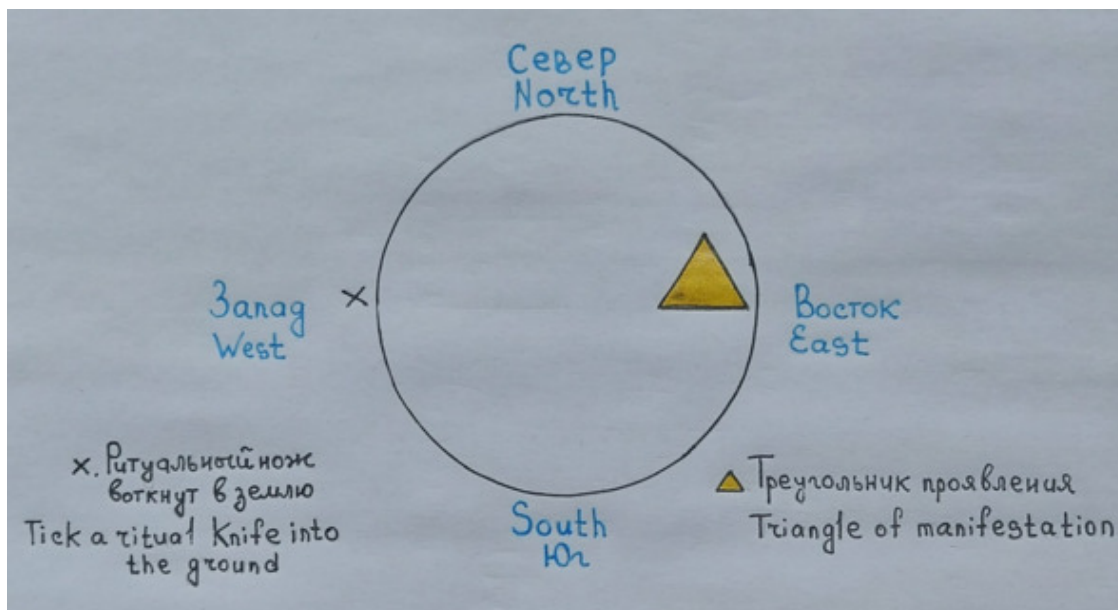 Север
North
Запад
West
Восток
East
×. Ритуальный нож
воткнут в землю
Tick a ritual Knife into
the ground
South
Юг
Треугольник проявления
Triangle of manifestation